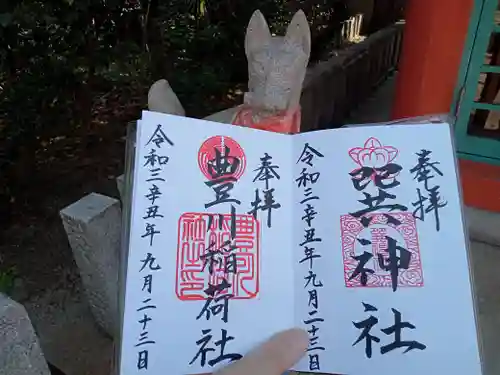 奉拝
𠮓神社
令和三辛丑年九月二十三日
奉拝
豊川稲荷社
令和三辛丑年九月二十三日